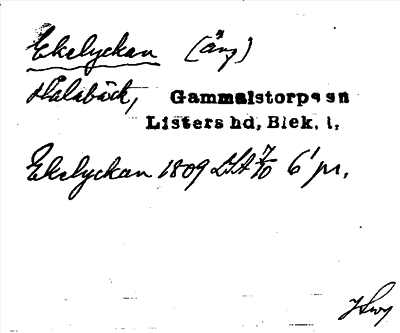 Ekelyckan (äng)
Hålabäck, Gammalstorps sn
Listers hd, Blek. l.
Ekelyckan 1809 LSA 7/10 6' pr.